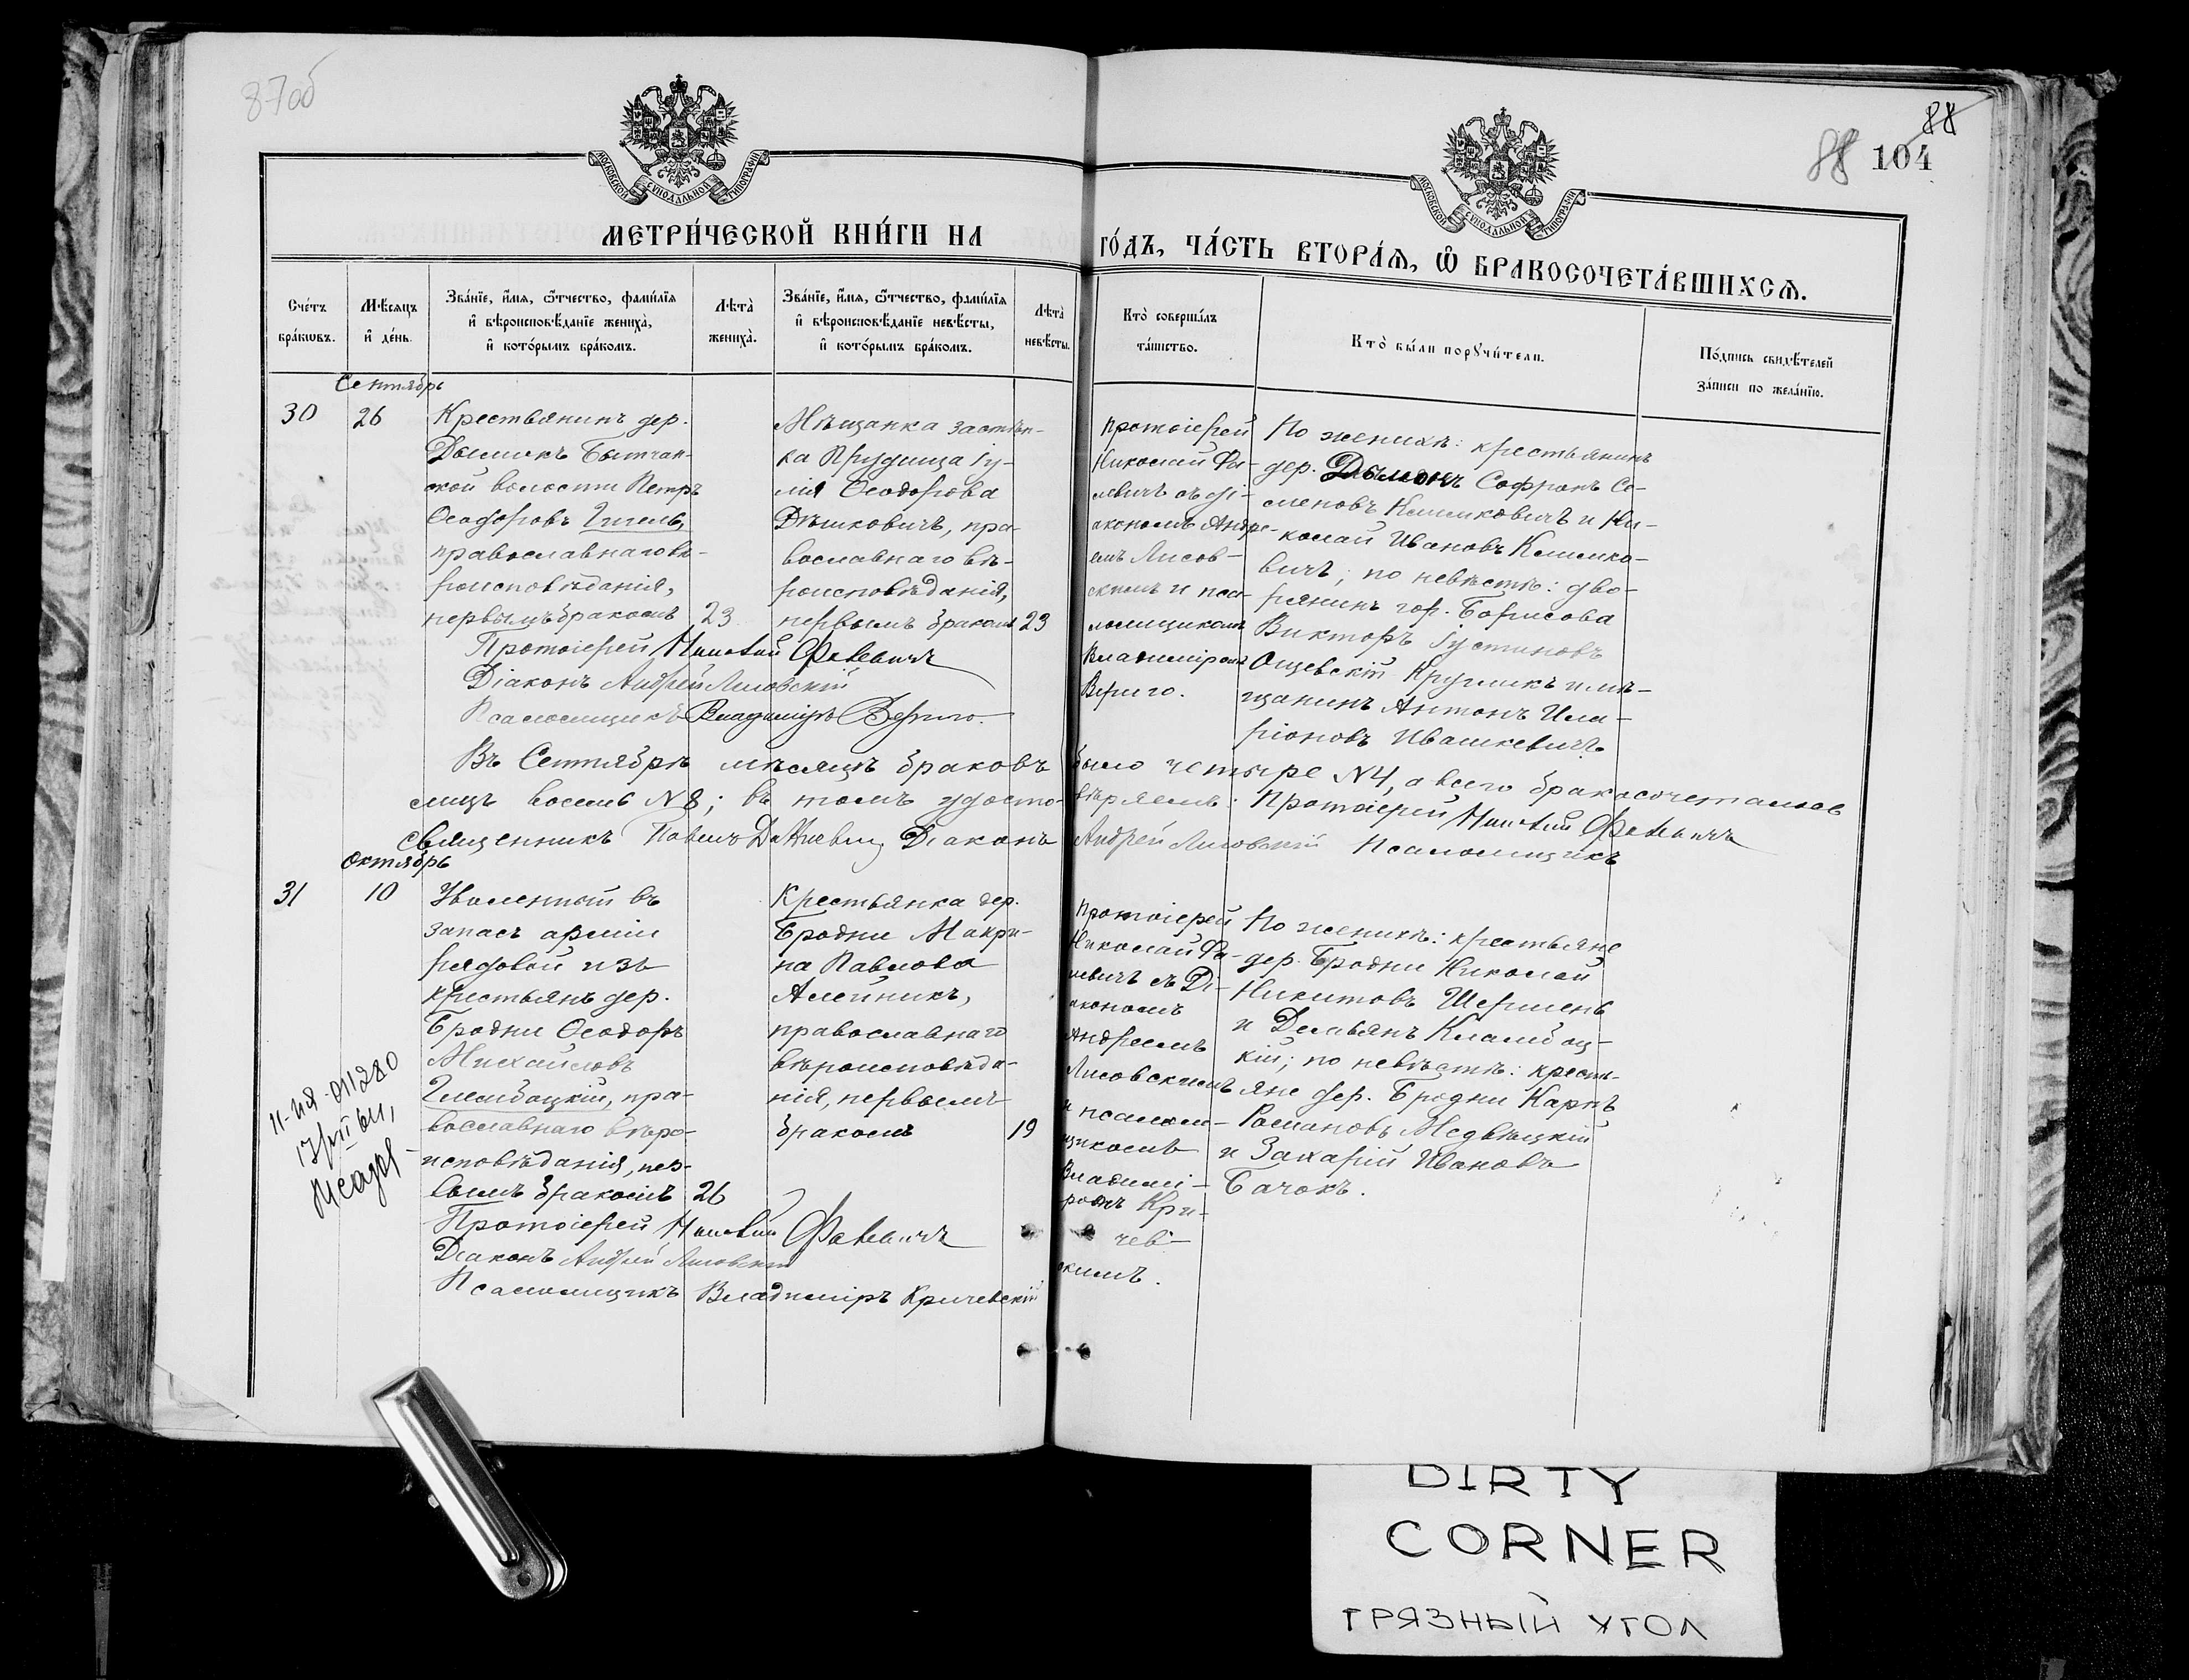 87об
88
88 104
МОСКОВСКОЙ СѴНОДАЛЬНОЙ ТИПОГРАФІИ
МОСКОВСКОЙ СѴНОДАЛЬНОЙ ТИПОГРАФІИ
МЕТРИ́ЧЕСКОЙ КНИ́ГИ НА
ГО́ДЪ, ЧА́СТЬ ВТОРА́Ѧ, Ѽ БРАКОСОЧЕТА́ВШИХСѦ.
Сче́тъ
бра́кωвъ.
Мѣсяцъ
и҆ де́нь.
Зва́нїе, и҆́мя, ѻ҆́тчество, фами́лїя
и҆ вѣроисповѣ́данїе жениха̀,
и҆ кото́рымъ бра́комъ.
Лѣта̀
жениха̀.
Зва́нїе, и҆́мя, ѻ҆́тчество, фами́лїя
и҆ вѣроисповѣ́данїе невѣ́сты,
и҆ кото́рымъ бра́комъ.
Лѣта̀
невѣ́сты.
Кто̀ соверши́лъ
та́инство.
Кто̀ бы́ли порꙋчи́тели.
По́дпись свидѣ́телей
за́писи по жела́нїю.
Сентябрь
30
26
Крестьянинъ дер.
Дымокъ Бытчан-
ской волости Петръ
Ѳеодоровъ
православнаго вѣ-
роисповѣданія,
первымъ бракомъ
23
Мѣщанка застѣн-
ка Прудища Іу-
лія Ѳеодорова
Дѣшковичъ, пра-
вославнаго вѣ-
роисповѣданія,
первымъ бракомъ
23
Протоіерей
Николай Фа-
левичъ съ ді-
акономъ Андре-
емъ Лисов-
скимъ и пса-
ломщикомъ
Владиміромъ
Вериго.
По женихѣ: крестьянинъ
дер. Дымокъ Софронъ Се-
меновъ Климковичъ и Ни-
колай Ивановъ Климко-
вичъ; по невѣстѣ: дво-
рянинъ гор. Борисова
Викторъ Іустиновъ
Ощевскій Кругликъ и мѣ-
щанинъ Антонъ Ила-
ріоновъ Ивашкевичъ.
Протоіерей Николай Фалевичъ
Діаконъ Андрей Лисовскій
Псаломщикъ Владиміръ Вериго.
Въ Сентябрѣ мѣсяцѣ браковъ было четыре №4, а всего бракосочетавшихся
лицъ восемь №8; въ томъ удосто-вѣряемъ: Протоіерей Николай Фалевичъ
Священникъ Павелъ Діаконъ Андрей Лисовскій Псаломщикъ
Октябрь
31
10
Уволенный въ
запасъ арміи
рядовой изъ
крестьянъ дер.
Бродни Ѳеодоръ
Михайловъ
пра-
вославнаго вѣро-
исповѣданія, пер-
вымъ бракомъ
26
Крестьянка дер.
Бродни Макри-
на Павлова
Алейникъ,
православнаго
вѣроисповѣда-
нія, первымъ
бракомъ
19
Протоіерей
Николай Фа-
левичъ съ Ді-
акономъ
Андреемъ
Лисовскимъ
и псалом-
щикомъ
Владимі-
ромъ Кри-
чев-
скимъ.
По женихѣ: крестьяне
дер. Бродни Николай
Никитовъ Шершень
и Демьянъ
кій; по невѣстѣ: кресть-
яне дер. Бродни Карпъ
Романовъ Медвѣцкій
и Захарій Ивановъ
Бачокъ.
Протоіерей Николай Фалевичъ
Діаконъ Андрей Лисовскій
Псаломщикъ Владиміръ Кричевскій
DIRTY
CORNER
ГРЯЗНЫЙ УГОЛ